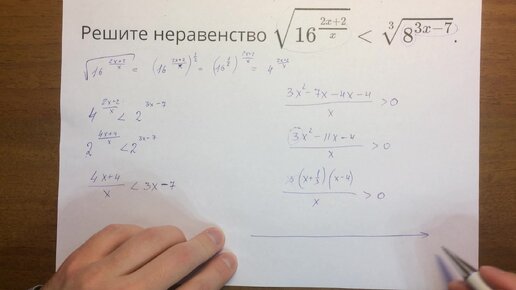 Решите неравенство √(16^((2x+2)/x)) < ∛(8^(3x−7)).
√(16^((2x+2)/x)) = (16^((2x+2)/x))^(1/2) = (16^(1/2))^((2x+2)/x) = 4^((2x+2)/x)
4^((2x+2)/x) < 2^(3x−7)
2^((4x+4)/x) < 2^(3x−7)
(4x+4)/x < 3x−7
(3x²−7x−4x−4)/x > 0
(3x²−11x−4)/x > 0
3(x+1/3)(x−4)/x > 0